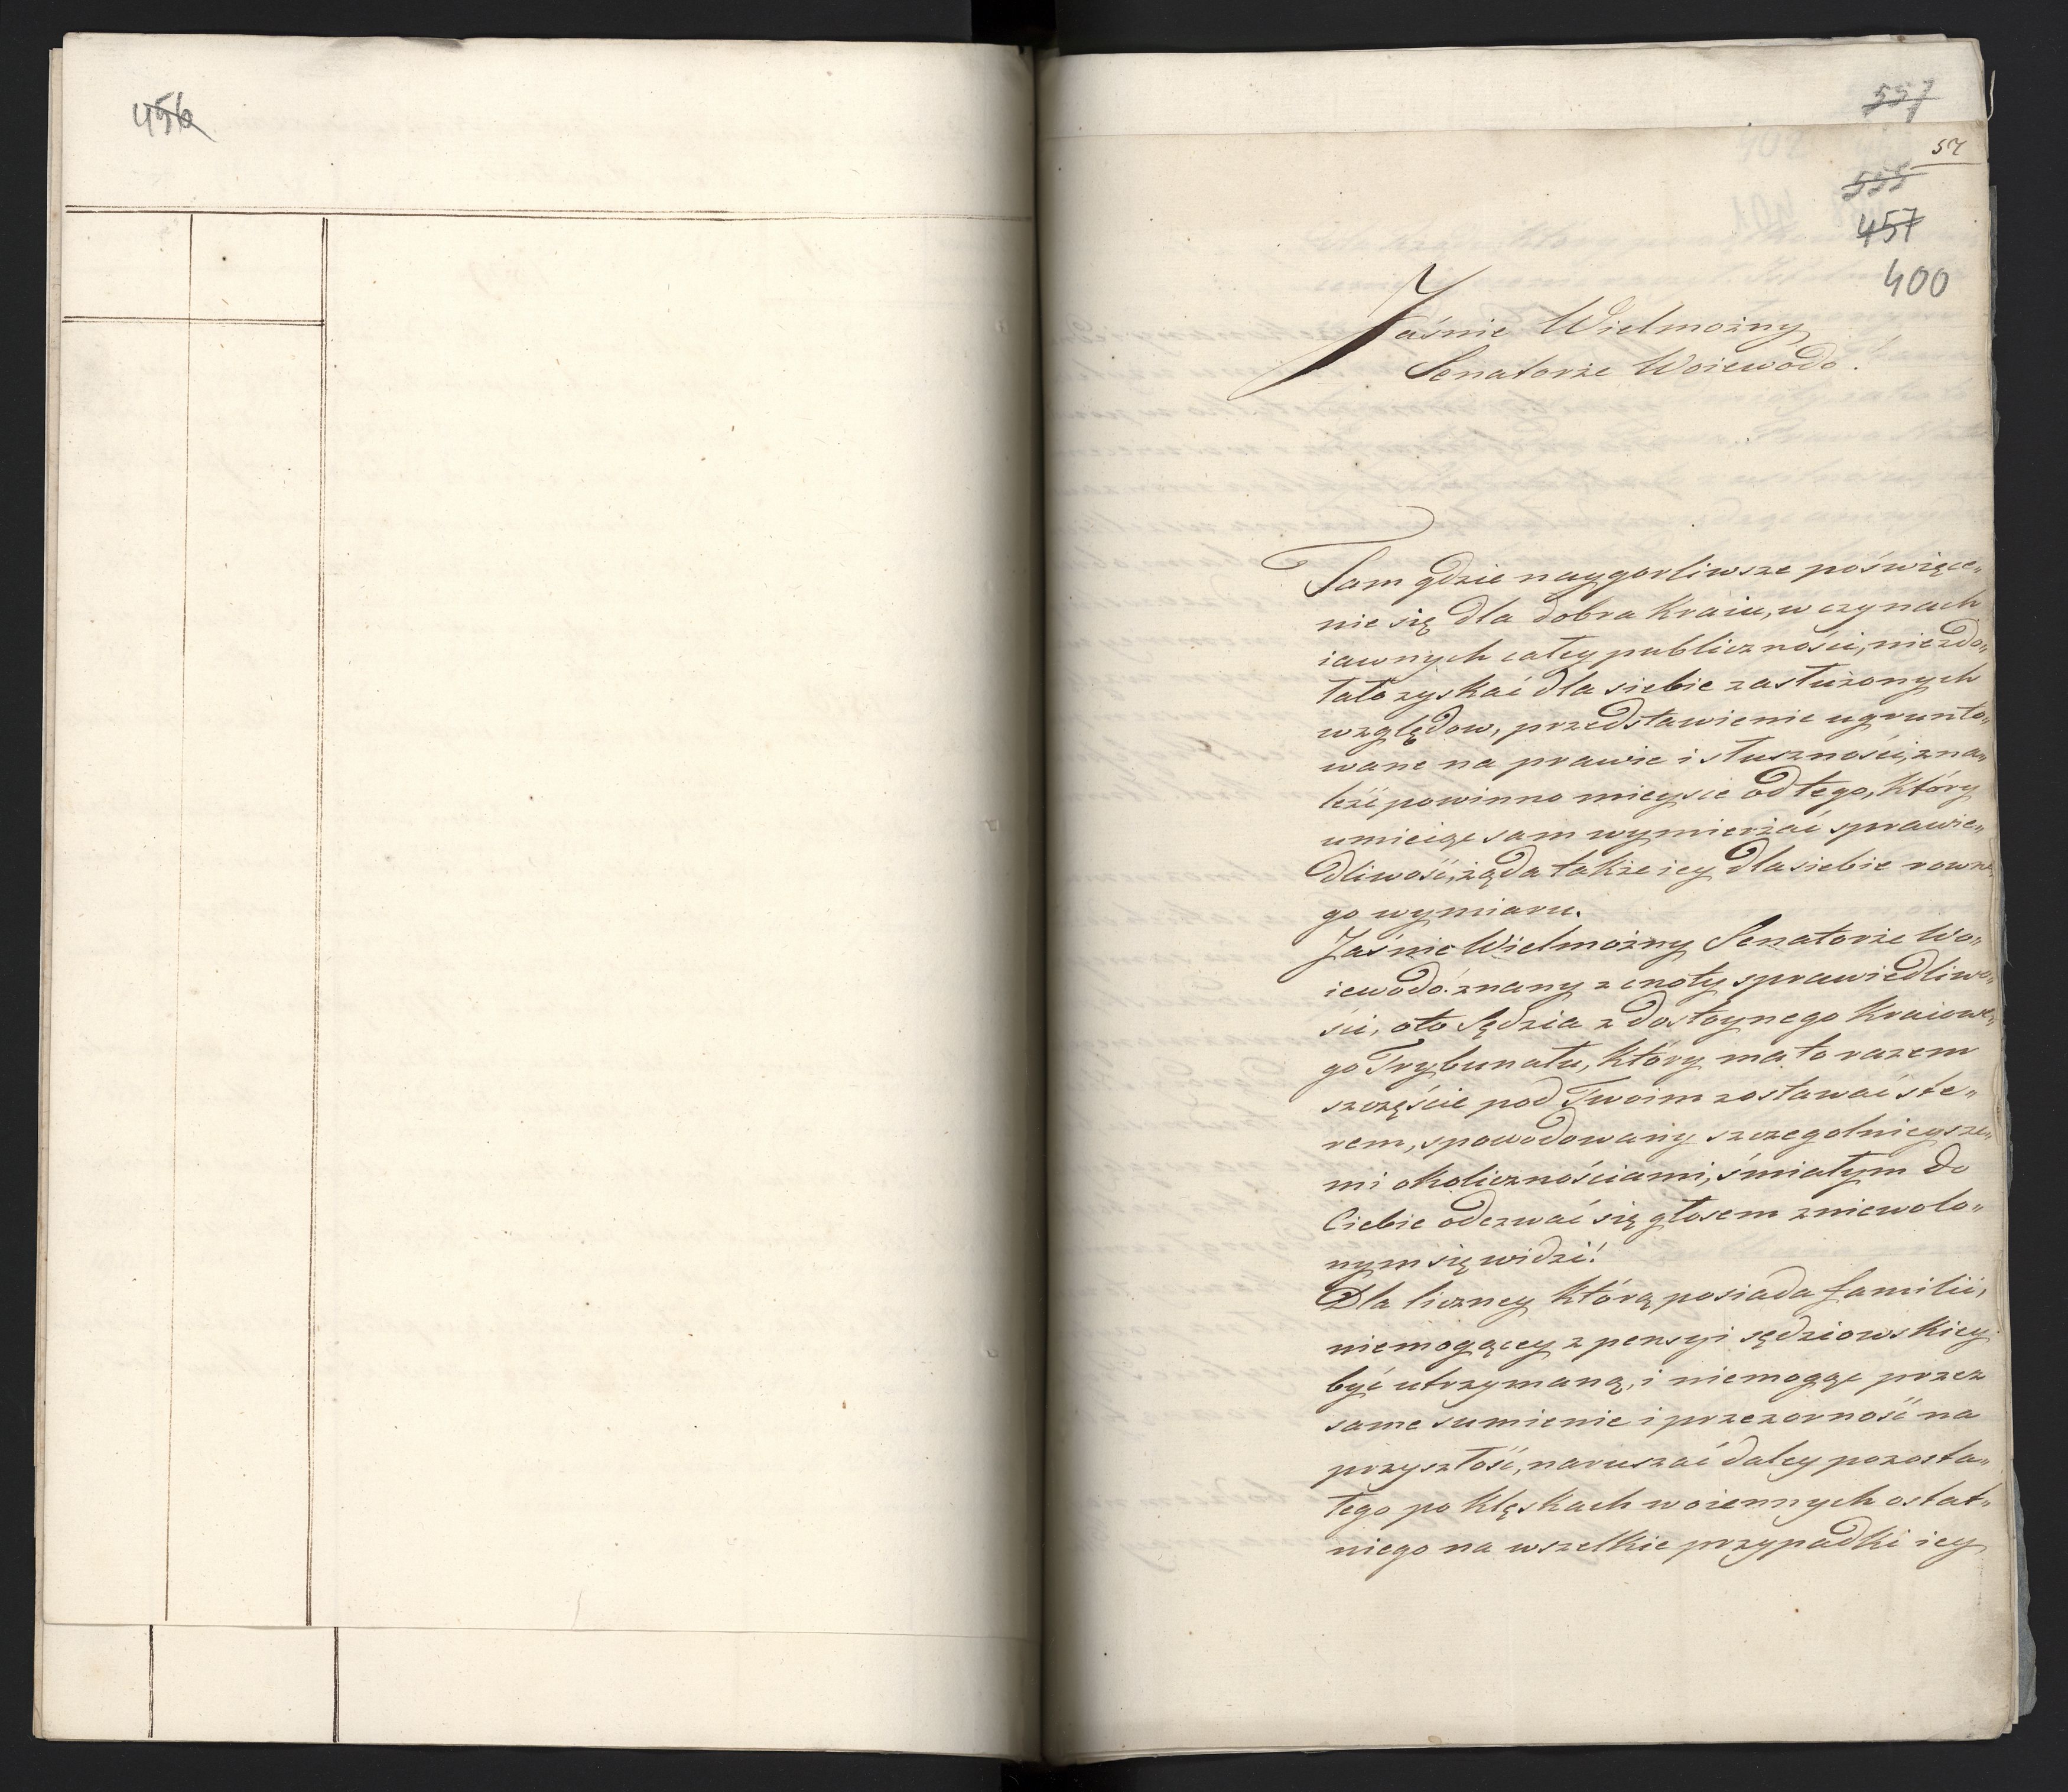 456
557
57
555
457
400
Jaśnie Wielmożny
Senatorze Woiewodo!
Tam gdzie naygorliwsze poświęce„
nie się dla dobra Kraiu, w czynach
iawnych całey publiczności, niezdo„
łało zyskać dla siebie zasłużonych
względow, przedstawienie ugrunto„
wane na prawie i słuszności, zna„
leźć powinno mieysce od tego, który
umieiąc sam wymierzać sprawie„
dliwość, żąda także iey dla siebie rowne„
go wymiaru.
Jaśnie Wielmożny Senatorze Wo„
iewodo! znany z cnoty sprawiedliwo„
ści, oto Sędzia z dostoynego Kraiowe„
go Trybunału, który ma to razem
szczęście pod Twoim zostawać ste„
rem, spowodowany szczegolnieysze„
mi okolicznościami, śmiałym do
Ciebie odezwać się głosem zniewolo„
nym się widzi!
Dla liczney którą posiada familii,
niemogącey z pensyi sędziowskiey
być utrzymaną, i niemogąc przez
same sumienie i przezorność na
przyszłość, naruszać daley pozosta„
łego po klęskach woiennych ostat„
niego na wszelkie przypadki iey